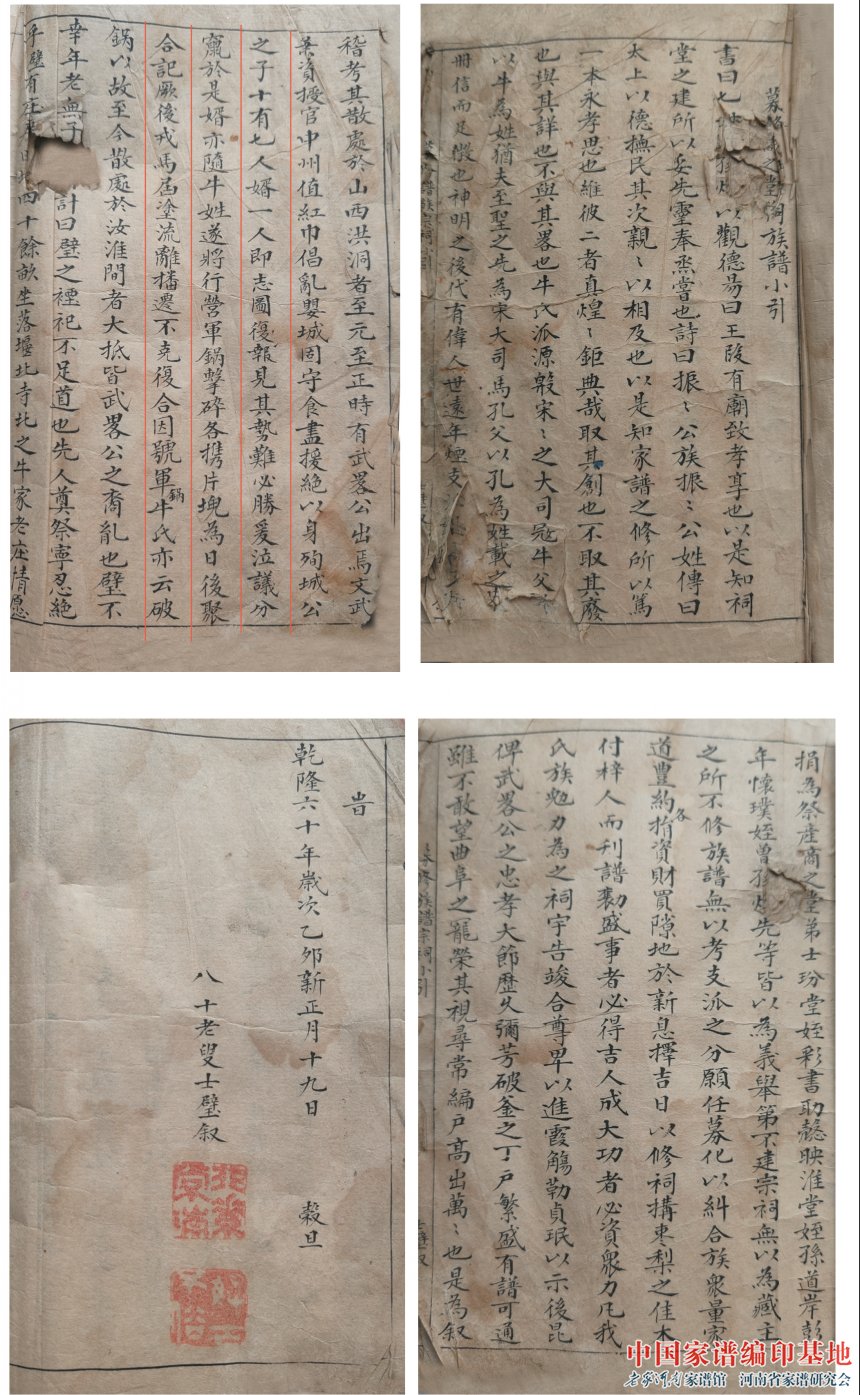 募修宗之堂豿族譜小引
書曰七世以觀德易曰王叚有廟致孝亯也以是知祠
堂之建所以妥先霊奉烝嘗也詩曰振〻公族振〻公姓傳曰
太上以德撫民其次親〻以相及也以是知家譜之修所以篤
一本永孝思也維彼二者真煌〻鉅典哉取其創也不取其廢
也與其詳也不與其畧也牛氏派源殷宋〻之大司冦牛父
以牛為姓猶夫至聖之先為宋大司馬孔父以孔為姓載之
冊信而足徴也神明之後代有偉人世遠年煙支
稽考其散處於山西洪洞者至元至正時有武畧公出焉文武
兼資授官中州值紅巾倡亂嬰城固守食盡援絕以身殉城公
之子十有七人婿一人即志圖復報見其勢難必勝爰泣議分
竄於是婿亦隨牛姓遂將行營軍鍋擊碎各攜片塊為日後聚
合記厥後戎馬載塗流離播遷不克復合因號軍鍋牛氏亦云破
鍋以故至今散處於汝淮間者大抵皆武畧公之裔胤也璧不
幸年老無子計曰璧之禋祀不足道也先人奠祭寧忍絶
乎璧有庄東四十餘畝坐落堰北寺北之牛家老庄情愿
捐為祭産商之堂弟士玢堂姪彩書耴懿映淮堂姪孫道岸彭
年懷璞姪曾孫先等皆以為義舉第不建宗祠無以為藏主
之所不修族譜無以考支派之分願任募化以糾合族衆量家
道豐約各捐資財買隙地於新息擇吉日以修祠搆枣梨之佳木
付梓人而刋譜勷盛事者必得吉人成大功者必資衆力凡我
氏族勉力為之祠宇告竣合尊卑以進霞觴勒貞珉以示後昆
俾武畧公之忠孝大節歴久彌芳破釜之丁户繁盛有譜可通
雖不敢望曲阜之寵榮其視尋常編户髙出萬〻也是為叙
旹
乾隆六十年歲次乙卯新正月十九日
穀旦
八十老叟士璧叙
募修族譜宗祠小引
中国家谱编印基地
老家河南家谱馆 河南省家谱研究会